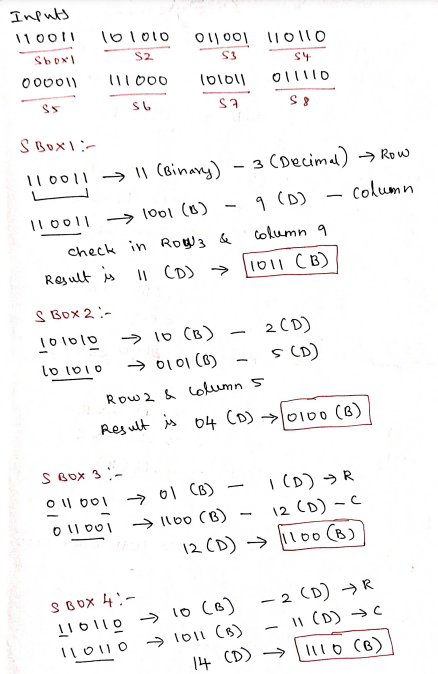 Inputs
110011 101010 011001 110110
Sbox1 S2 S3 S4
000011 111000 101011 011110
S5 S6 S7 S8
S Box1:-
110011 → 11 (Binary) - 3 (Decimal) → Row
110011 → 1001 (B) - 9 (D) - Column
check in Row3 & Column 9
Result is 11 (D) → 1011 (B)
S BOX2:-
101010 → 10 (B) - 2 (D)
101010 → 0101 (B) - 5 (D)
Row2 & Column 5
Result is 04 (D) → 0100 (B)
S BOX 3:-
011001 → 01 (B) - 1 (D) → R
011001 → 1100 (B) - 12 (D) - C
12 (D) → 1100 (B)
S BOX 4:-
110110 → 10 (B) - 2 (D) → R
110110 → 1011 (B) - 11 (D) → C
14 (D) → 1110 (B)